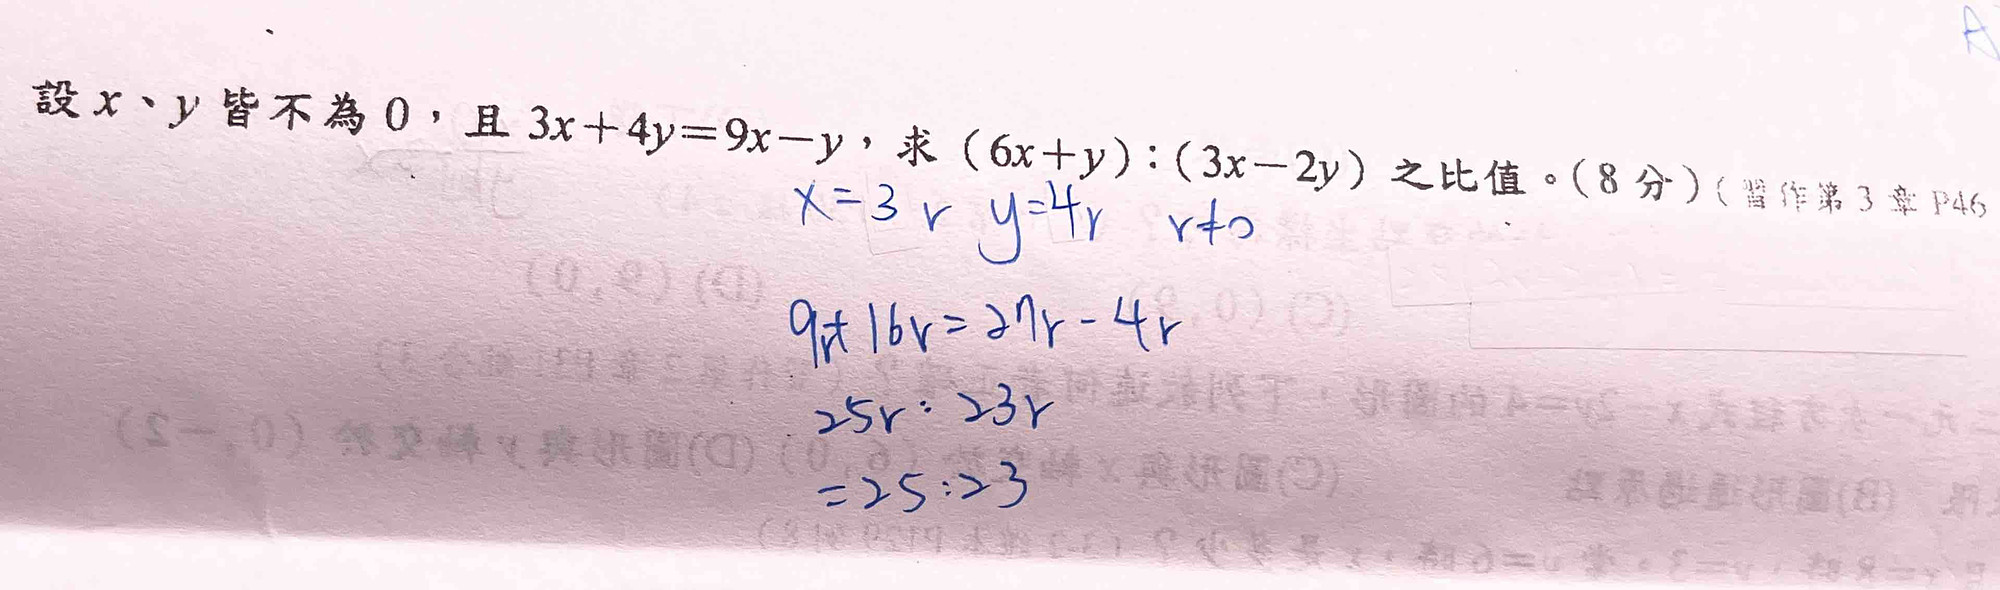 設 x、y 皆不為 0，且 3x+4y=9x-y，求（6x+y）:（3x-2y）之比值。（8 分）（習作第 3 章 P46
x=3r y=4r r≠0
9r+16r=27r-4r
25r:23r
=25:23